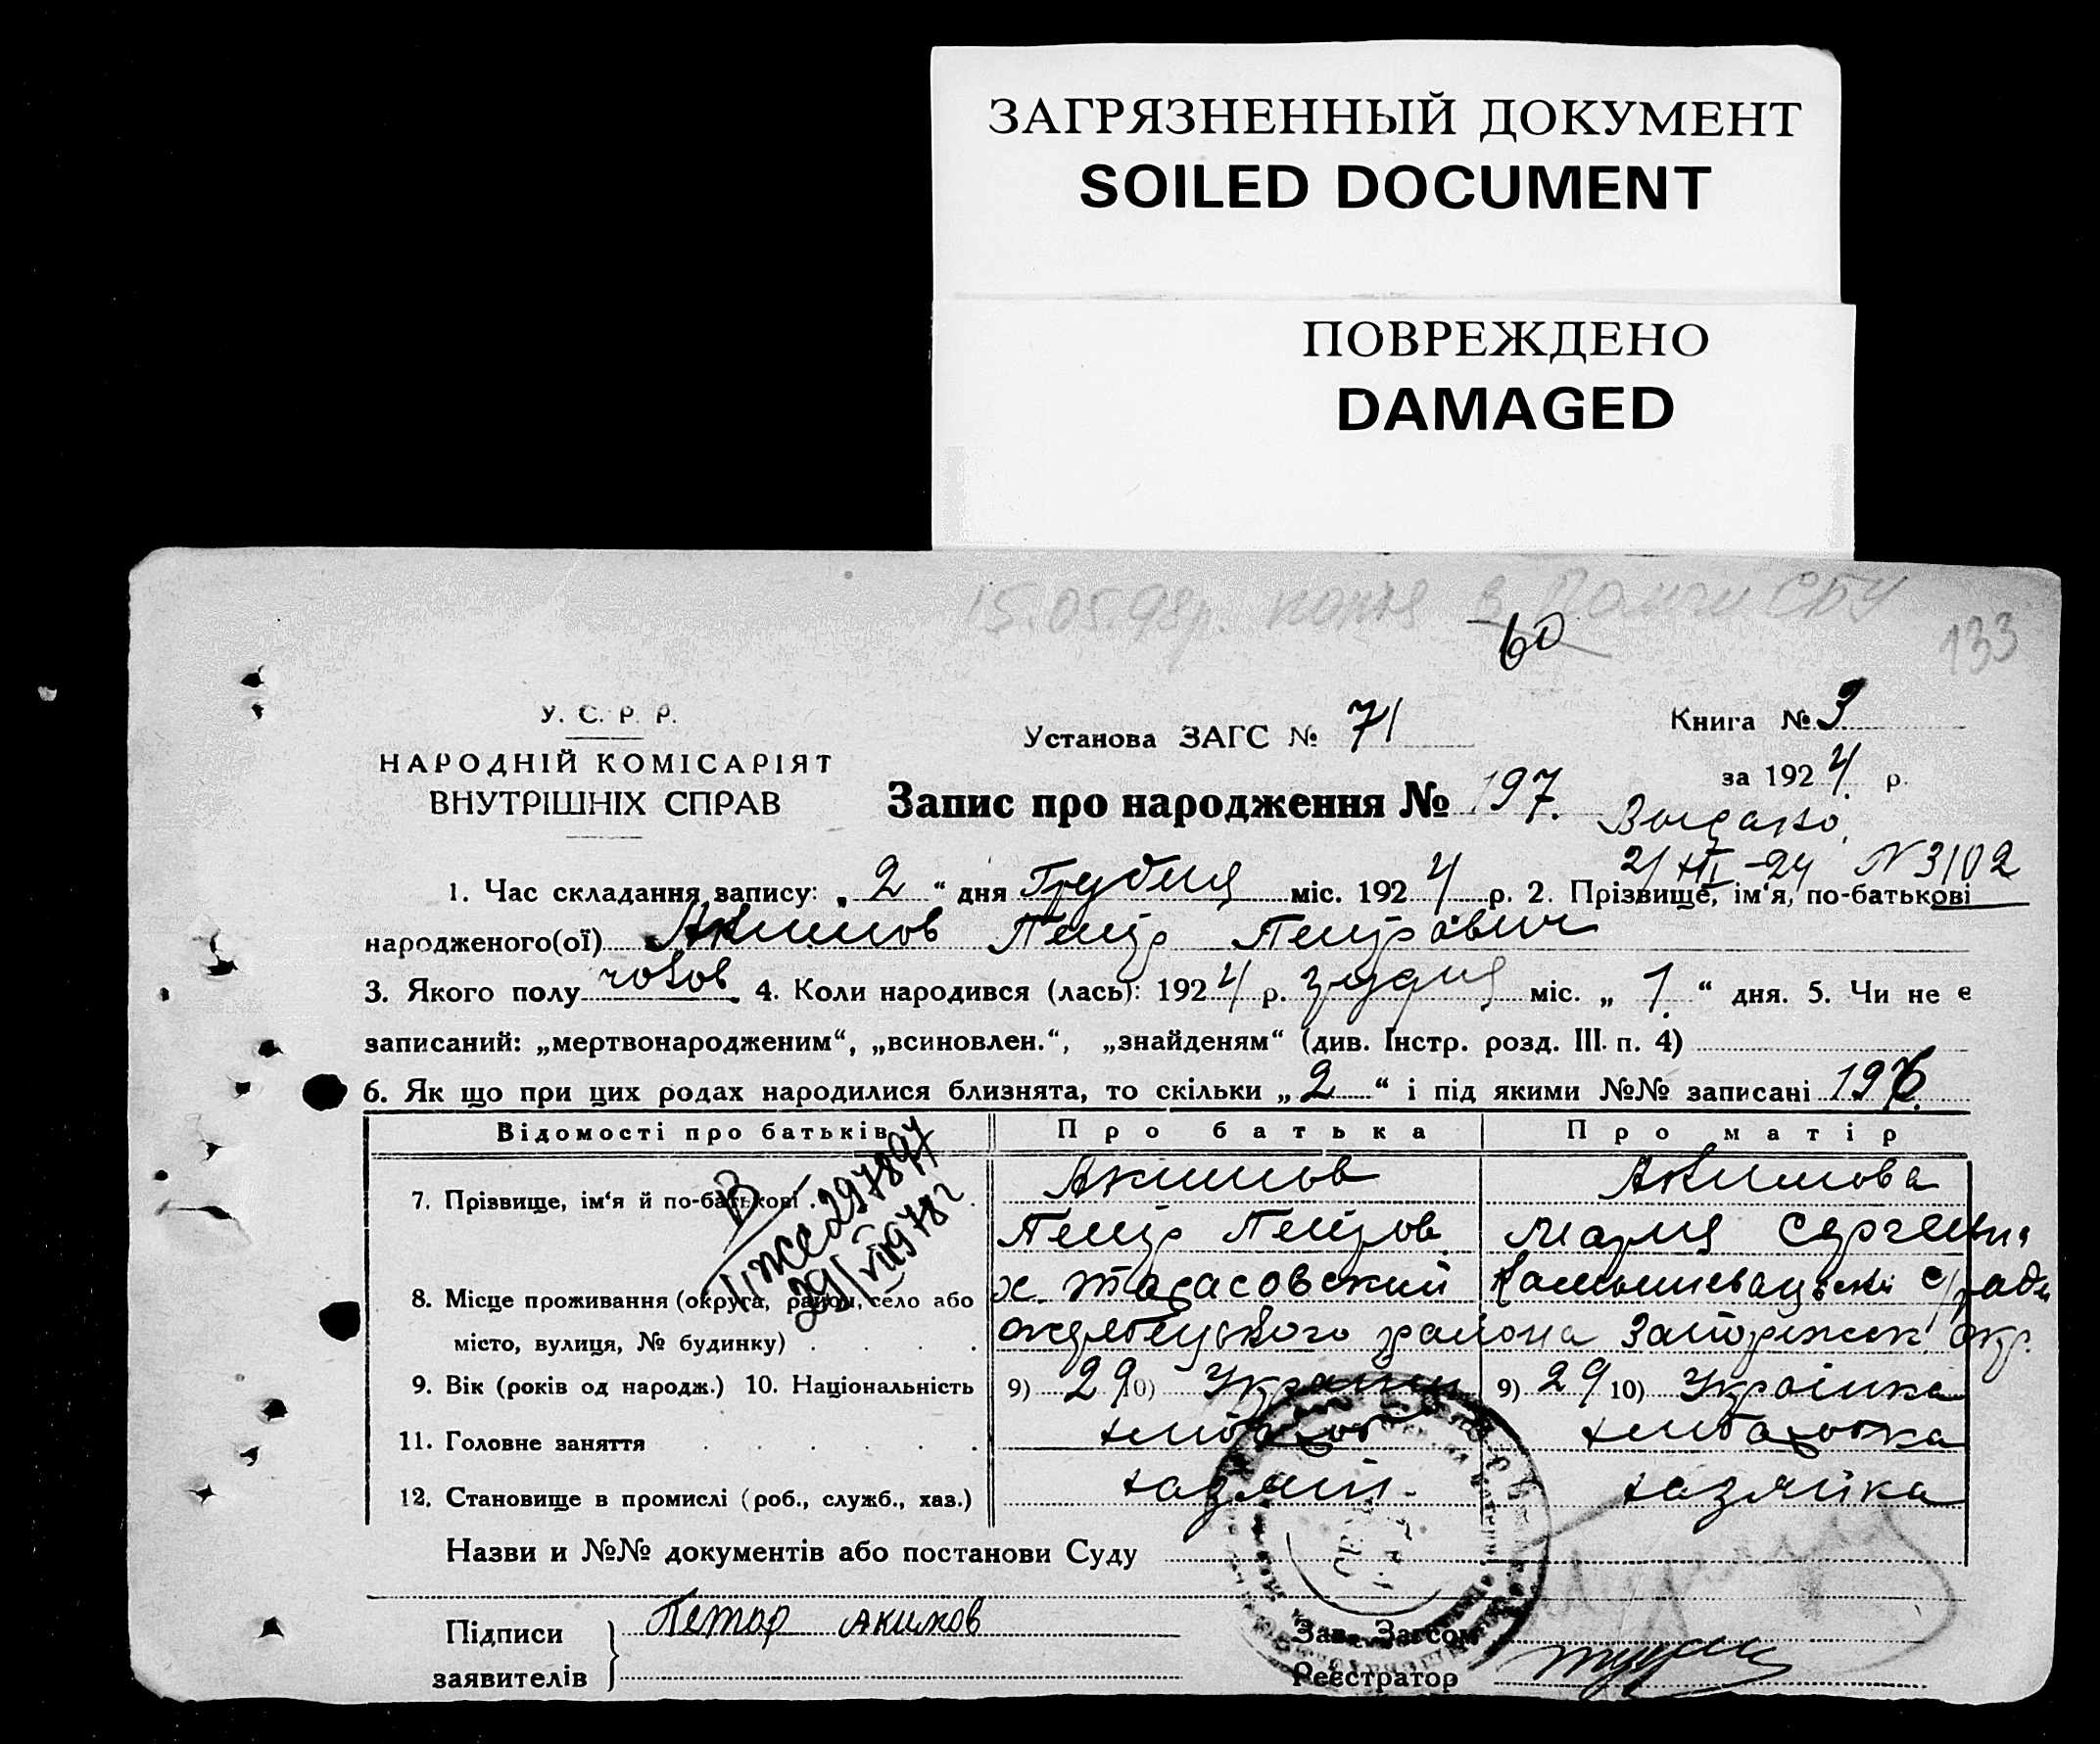 ЗАГРЯЗНЕННЫЙ ДОКУМЕНТ
SOILED DOCUMENT
ПОВРЕЖДЕНО
DAMAGED
15.05.98р. копія в СБУ
60
133
У. С. Р. Р.
НАРОДНІЙ КОМІСАРІЯТ
ВНУТРІШНІХ СПРАВ
Установа ЗАГС № 71
Книга № 3
за 1924 р.
Запис про народження № 197.
Выдано
2/XII-24 N 3102
1. Час складання запису: „ 2 “ дня Грудня міс. 1924 р. 2. Прізвище, ім‘я, по-батькові
народженого(ої) Акимов Петр Петрович
3. Якого полу чолов 4. Коли народився (лась): 1924 р. грудня міс. „ 1 “ дня. 5. Чи не є
записаний: „мертвонародженим“, „всиновлен.“, „знайденям“ (див. Інстр. розд. III. п. 4)
6. Як що при цих родах народилися близнята, то скільки „ 2 “ і під якими №№ записані 196.
Відомості про батьків Про батька Про матір
7. Прізвище, ім‘я й по-батькові Акимов Акимова
Петр Петров Мария Сергеевна
8. Місце проживання (округа, район, село або х. Тарасовский Камышевацької с/ради
місто, вулиця, № будинку) района Запоріжск. окр.
9. Вік (років од народж.) 10. Національність 9) 29 10) Українец 9) 29 10) Українка
11. Головне заняття хлібороб хліборобка
12. Становище в промислі (роб., служб., хаз.) хазяїн хазяйка
В
II жс 297897
29/VII 1978г
Назви и №№ документів або постанови Суду
Підписи Петор Акимов Зав. Загсом
заявителів Реєстратор